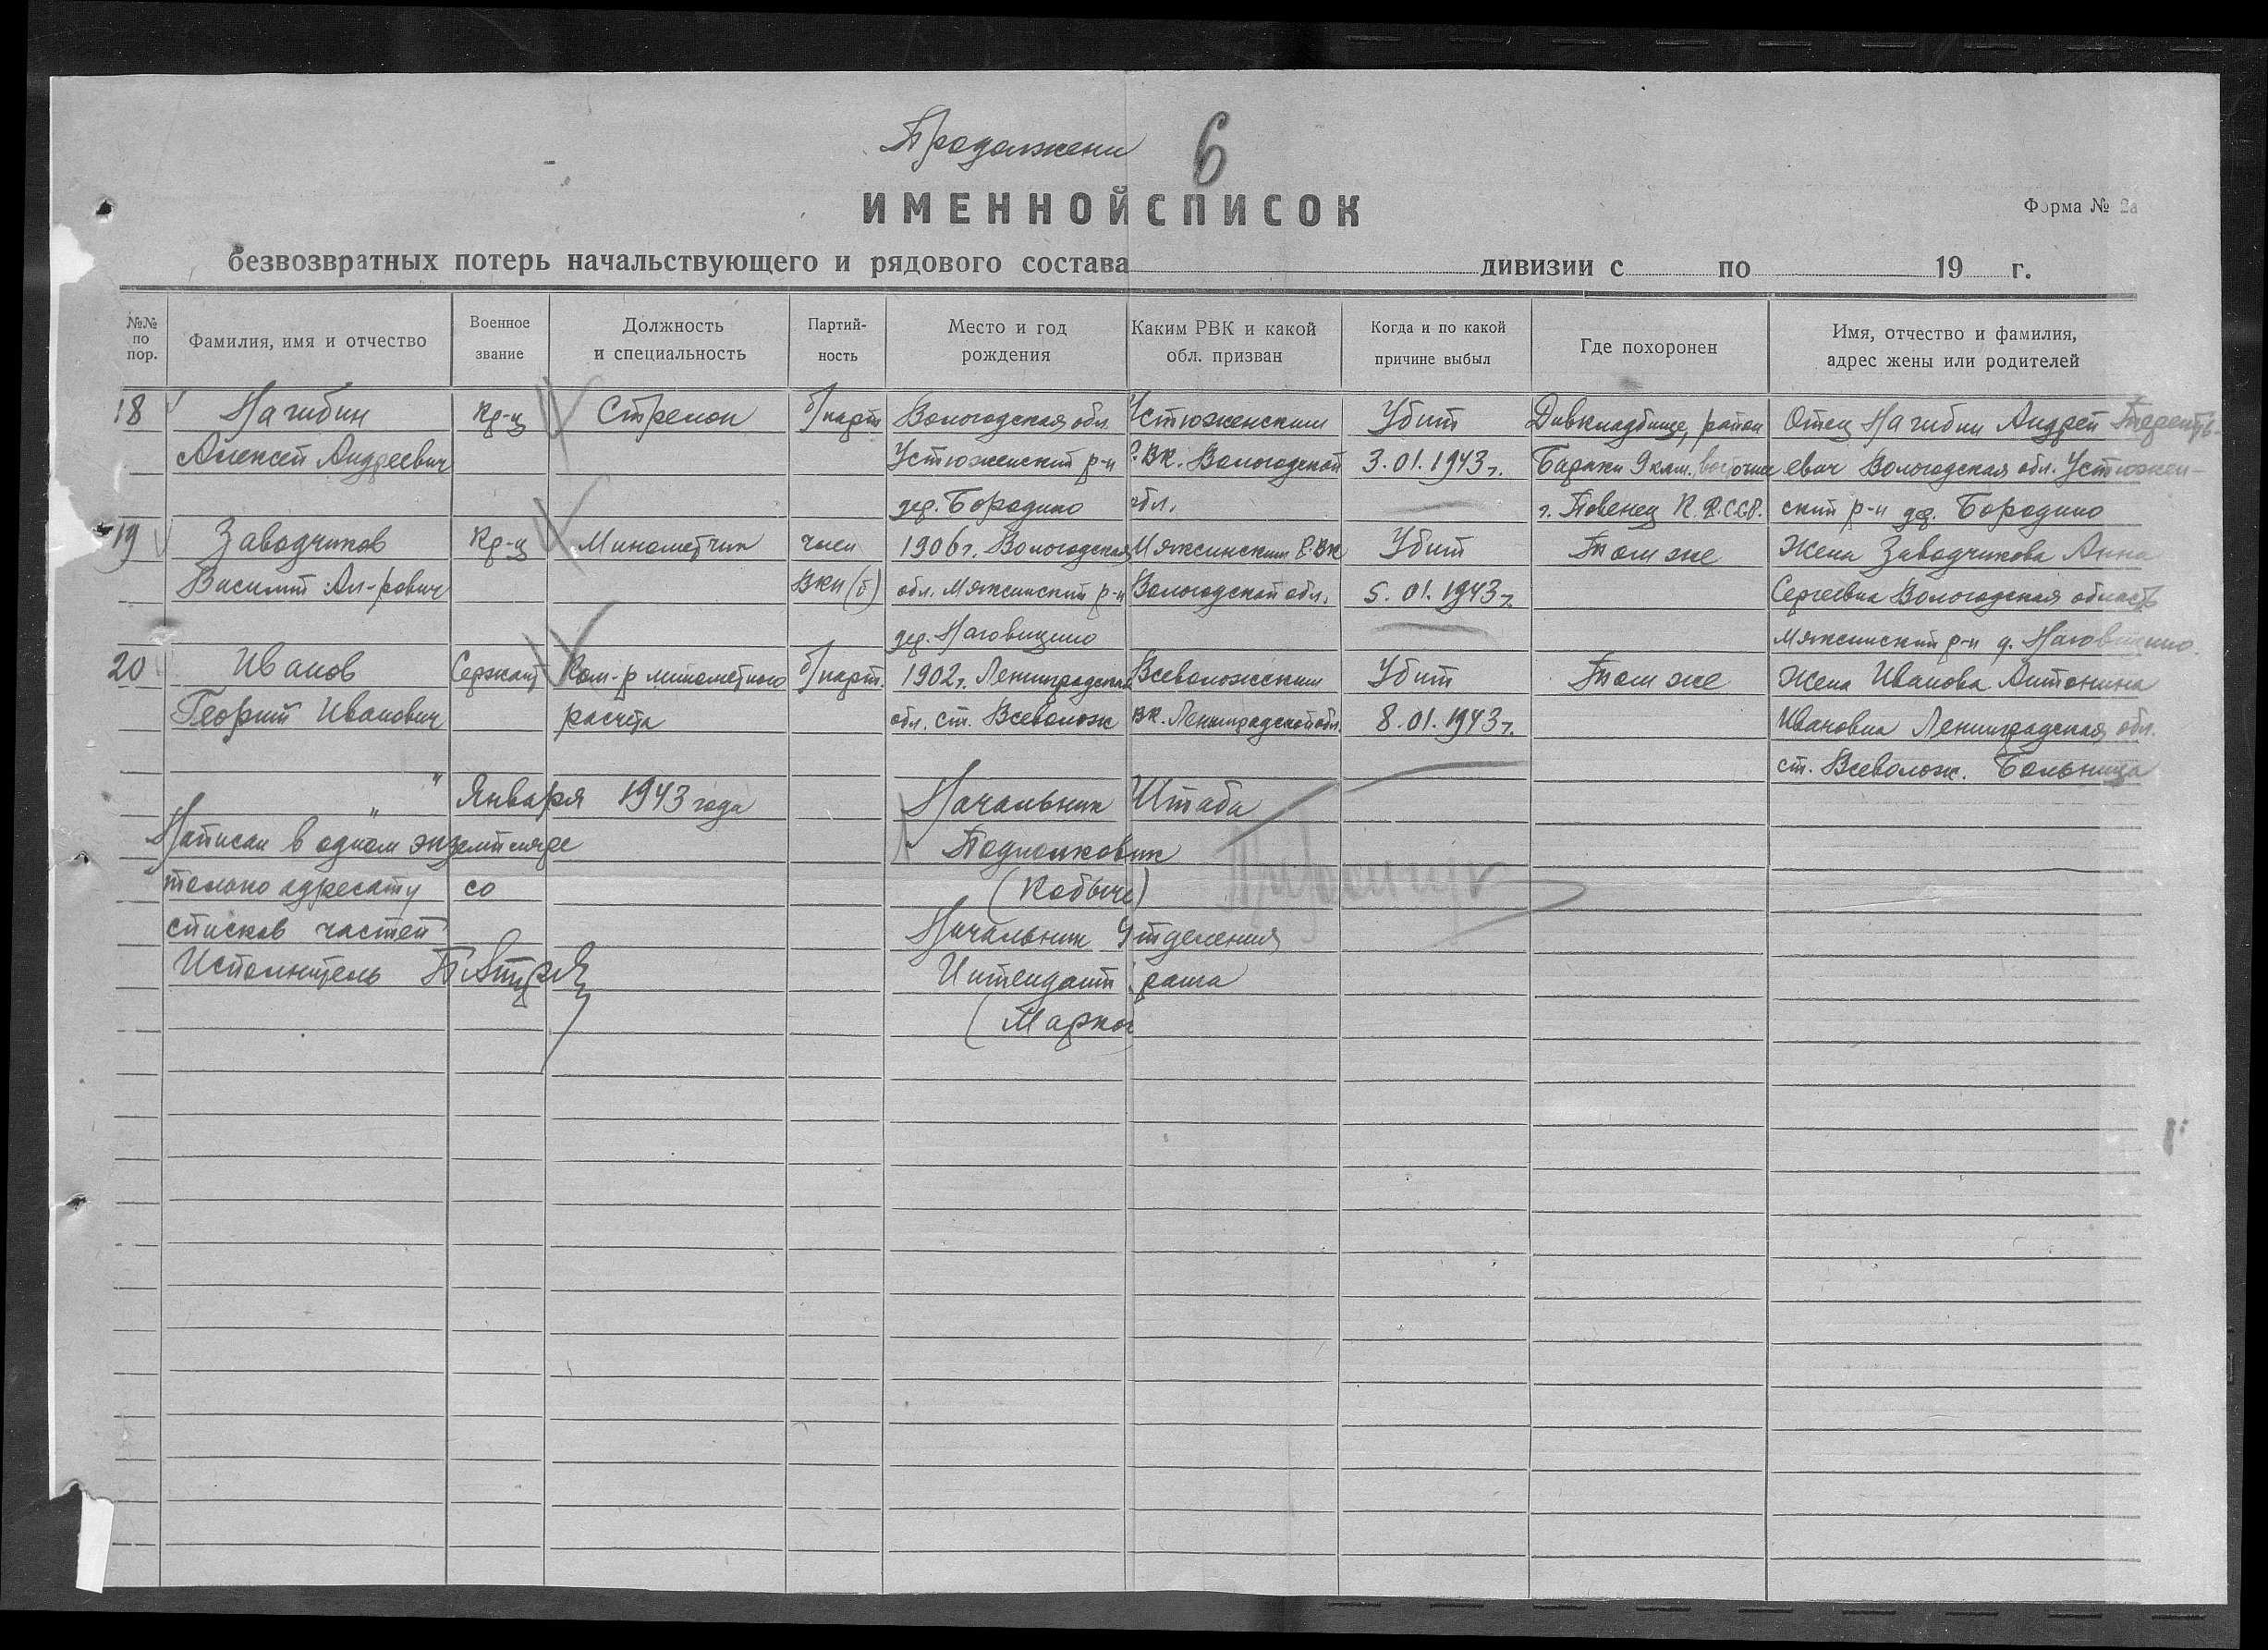 Продолжени 6
ИМЕННОЙ СПИСОК
Форма № 2а
безвозвратных потерь начальствующего и рядового состава дивизии с по 19 г.
№№ по пор.
Фамилия, имя и отчество
Военное звание
Должность и специальность
Партий-ность
Место и год рождения
Каким РВК и какой обл. призван
Когда и по какой причине выбыл
Где похоронен
Имя, отчество и фамилия, адрес жены или родителей
18 Нагибин Кр-ц Стрелок б/парт Вологодская обл. Устюженским Убит Дивкладбище, район Отец Нагибин Андрей Терентъ-
Алексей Андреевич Устюженский р-н РВК. Вологодской 3.01.1943г. Бараки 9 клм. восточнее евич Вологодская обл. Устюжен-
дер. Бородино обл. г. Повенец К.Ф.С.С.Р. ский р-н дер. Бородино
19 Заводчиков Кр-ц Минометчик член 1906г. Вологодская Мяксинским РВК Убит Там же Жена Заводчикова Анна
Василий Ал-рович ВКП(б) обл. Мяксинский р-н Вологодской обл. 5.01.1943г. Сергеевна Вологодская область
дер. Наговицино Мяксинский р-н д. Наговицино.
20 Иванов Сержант Ком-р минометного б/парт. 1902г. Ленинградская Всеволожским Убит Там же Жена Иванова Антонина
Георгий Иванович расчета обл. ст. Всеволож ВК. Ленинградской обл. 8.01.1943г. Ивановна Ленинградская обл.
ст. Всеволож. Больница
" " Января 1943 года Начальник Штаба
Написан в одном экземпляре Подполковник
только адресату со
списков частей Начальник Отделения
Исполнитель Интендант ранга
(Марков